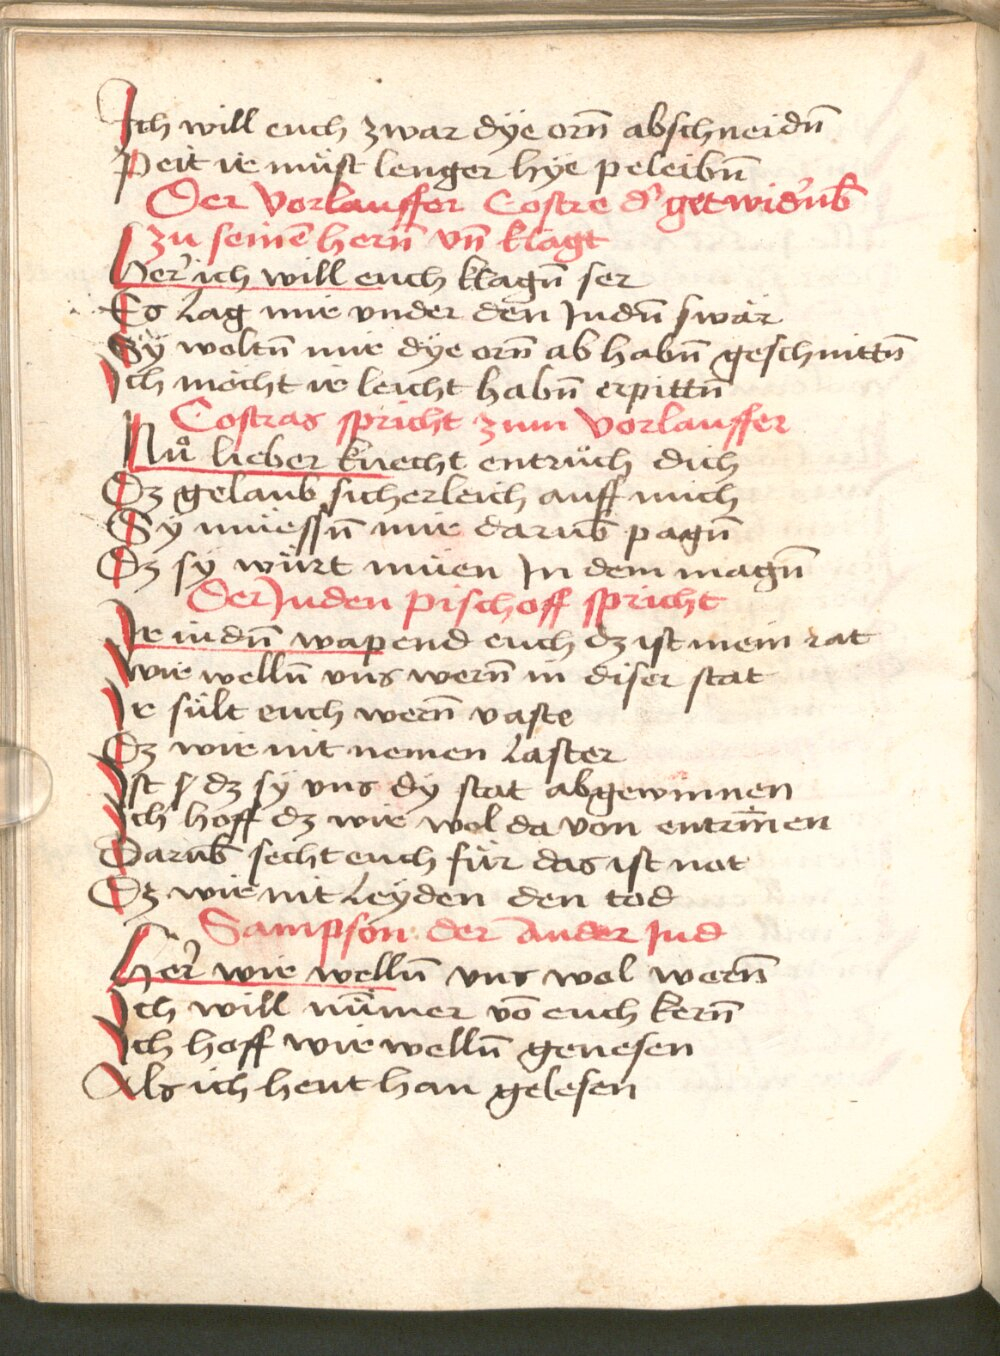 Ich will euch zwar dÿe orn̄ abschneidn̄
Peit ir müst lenger hÿe peleibn̄
Der Vorlauffer Costre d' get wid'ub̄
zu seinē hern̄ vn̄ klagt
Her' ich will euch klagn̄ ser
Es Lag mir vnder den Judn̄ swär
Sÿ woltn̄ mir dÿe orn̄ ab habn̄ geschnittn̄
Ich möcht ir leicht habn̄ erpittn̄
Costras spricht zum Vorlauffer
Nuͦ lieber knecht entrüch dich
Dz gelaub sicherleich auff mich
Sÿ müessn̄ mir darub̄ pagn̄
Dz sÿ würt müen In dem magn̄
Der Juden pischoff spricht
Ir iudn̄ wapend euch dz ist mein rat
wir welln̄ vns wern̄ in diser stat
Ir sült euch wern̄ vaste
Dz wir nit nemen Laster
Ist s' dz sÿ vns dÿ stat abgewinnen
Ich hoff dz wir wol da von entrin̄en
Darub̄ secht euch für das ist not
Dz wir nit Leÿden den tod
Sampson der Ander Jud
Her' wir welln̄ vns wol wern̄
Ich will nüm̄er vō euch kern̄
Ich hoff wir welln̄ genesen
Als ich heut han gelesen